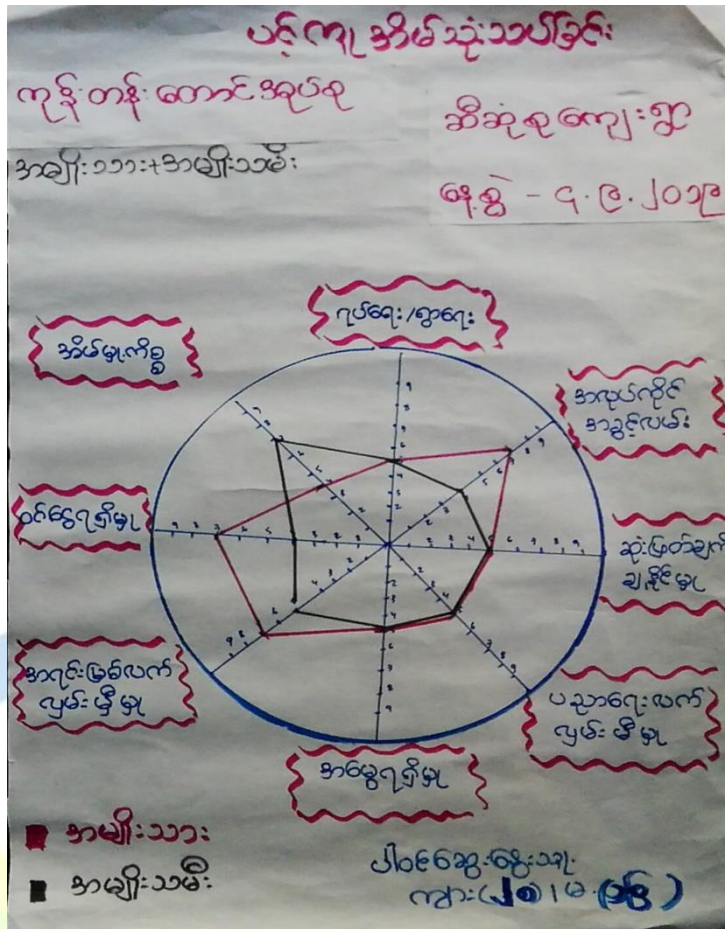 ပင့်ကူအိမ်သုံးသပ်ခြင်း
ကုန်းတန်းတောင်အုပ်စု
ဆီဆုံစုကျေးရွာ
အမျိုးသား+အမျိုးသမီး
နေ့စွဲ - ၄.၉.၂၀၁၉
ရပ်ရေး/ရွာရေး
အိမ်မှုကိစ္စ
အလုပ်ကိုင်
အခွင့်လမ်း
ဝင်ငွေရရှိမှု
ဆုံးဖြတ်ချက်
ချနိုင်မှု
အရင်းမြစ်လက်
လှမ်းမှီမှု
ပညာရေးလက်
လှမ်းမှီမှု
အမွေရရှိမှု
အမျိုးသား
အမျိုးသမီး
ပါဝင်ဆွေးနွေးသူ
ကျား